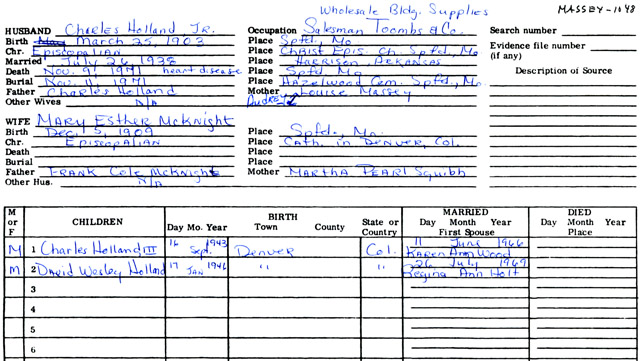 Wholesale Bldg. Supplies
MASSEY-1048
HUSBAND Charles Holland Jr. Occupation Salesman Toombs & Co. Search number
Birth March 25, 1903 Place Spfd, Mo
Evidence file number (if any)
Chr. Episcopalian Place Christ Epis. Ch. Spfd, Mo
Married July 26, 1938 Place Harrison, Arkansas
Death Nov. 9, 1971 heart disease Place Spfd Mo
Description of Source
Burial Nov. 11, 1971 Place Hazelwood Cem. Spfd, Mo.
Father Charles Holland Mother Louise Massey
Other Wives N/A Audrey
WIFE Mary Esther McKnight
Birth Dec. 5, 1909 Place Spfd., Mo.
Chr. Episcopalian Place Cath. in Denver, Col.
Death Place
Burial Place
Father Frank Cole McKnight Mother Martha Pearl Squibb
Other Hus. N/A
M or F CHILDREN BIRTH MARRIED DIED
Day Mo. Year Town County State or Country Day Month Year First Spouse Day Month Year Place
M 1 Charles Holland III 16 Sept. 1943 Denver Col. 11 June 1966 Karen Ann Wood
M 2 David Wesley Holland 17 JAN 1946 " " 26 July 1969 Regina Ann Holt
3
4
5
6